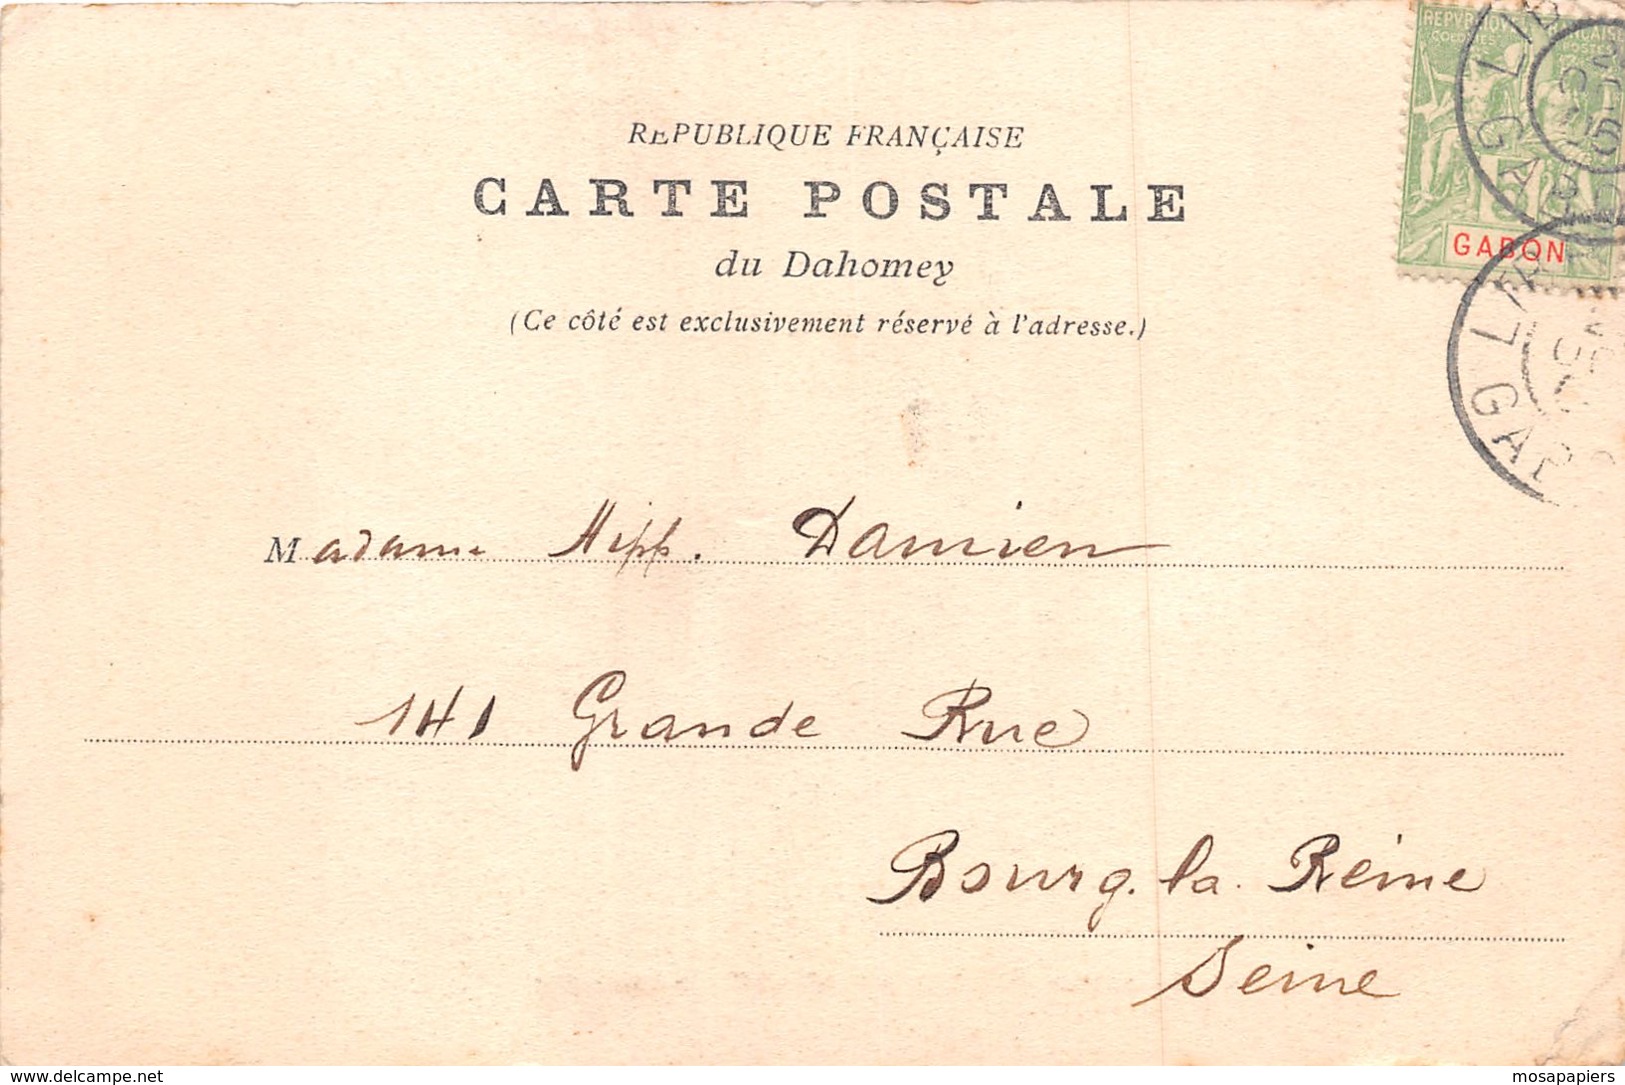 REPUBLIQUE FRANÇAISE
CARTE POSTALE
du Dahomey
(Ce côté est exclusivement réservé à l'adresse.)
REPUBLIQUE FRANÇAISE
COLONIES POSTES
GABON
Madame Hipp. Damien
141 Grande Rue
Bourg. la. Reine
Seine
www.delcampe.net
mosapapiers